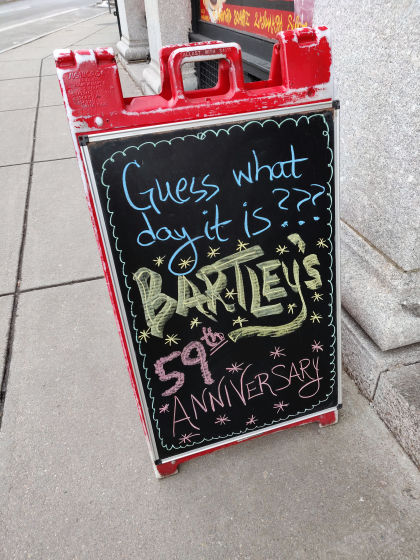 Guess what
day it is???
BARTLEY'S
59th
ANNIVERSARY